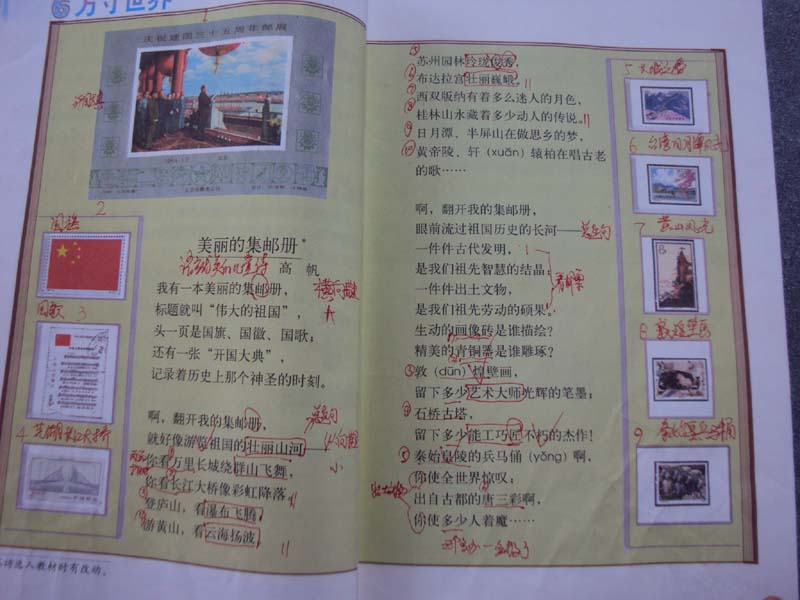 6 方寸世界
1
庆祝建国三十五周年邮展
2
国旗
国歌 3
4 芜湖长江大桥
美丽的集邮册*
高 帆
我有一本美丽的集邮册，
标题就叫“伟大的祖国”，
头一页是国旗、国徽、国歌；
还有一张“开国大典”，
记录着历史上那个神圣的时刻。
啊，翻开我的集邮册，
总起句
就好像游览祖国的壮丽山河——
你看万里长城绕群山飞舞，
你看长江大桥像彩虹降落。
登庐山，看瀑布飞腾，
游黄山，看云海扬波，
诗选入教材时有改动。
苏州园林玲珑俊秀，
布达拉宫壮丽巍峨，
西双版纳有着多么迷人的月色，
桂林山水藏着多少动人的传说。
日月潭、半屏山在做思乡的梦，
黄帝陵、轩（xuān）辕柏在唱古老
的歌……
啊，翻开我的集邮册，
眼前流过祖国历史的长河——
总起句
一件件古代发明，
是我们祖先智慧的结晶；
看邮票
一件件出土文物，
是我们祖先劳动的硕果。
生动的画像砖是谁描绘？
精美的青铜器是谁雕琢？
敦（dūn）煌壁画，
留下多少艺术大师光辉的笔墨；
石桥古塔，
留下多少能工巧匠不朽的杰作！
秦始皇陵的兵马俑（yǒng）啊，
你使全世界惊叹；
出自古都的唐三彩啊，
你使多少人着魔……
5 长城
6 台湾日月潭风光
7 黄山风光
8 敦煌壁画
9 秦始皇兵马俑